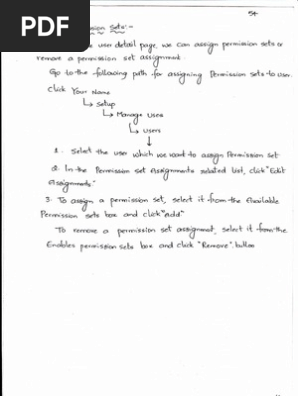 PDF
54
ission Sets:-
the user detail page, we can assign permission sets or
remove a permission set assignment.
Go to the following path for assigning Permission sets to user.
Click Your Name
Setup
Manage Users
Users
1. Select the user which we want to assign Permission set
2. In the Permission set Assignments related list, click "Edit
Assignments"
3. To assign a permission set, select it from the Available
Permission sets box and click "Add"
To remove a permission set assignment, select it from the
Enables permission sets box and click "Remove" button